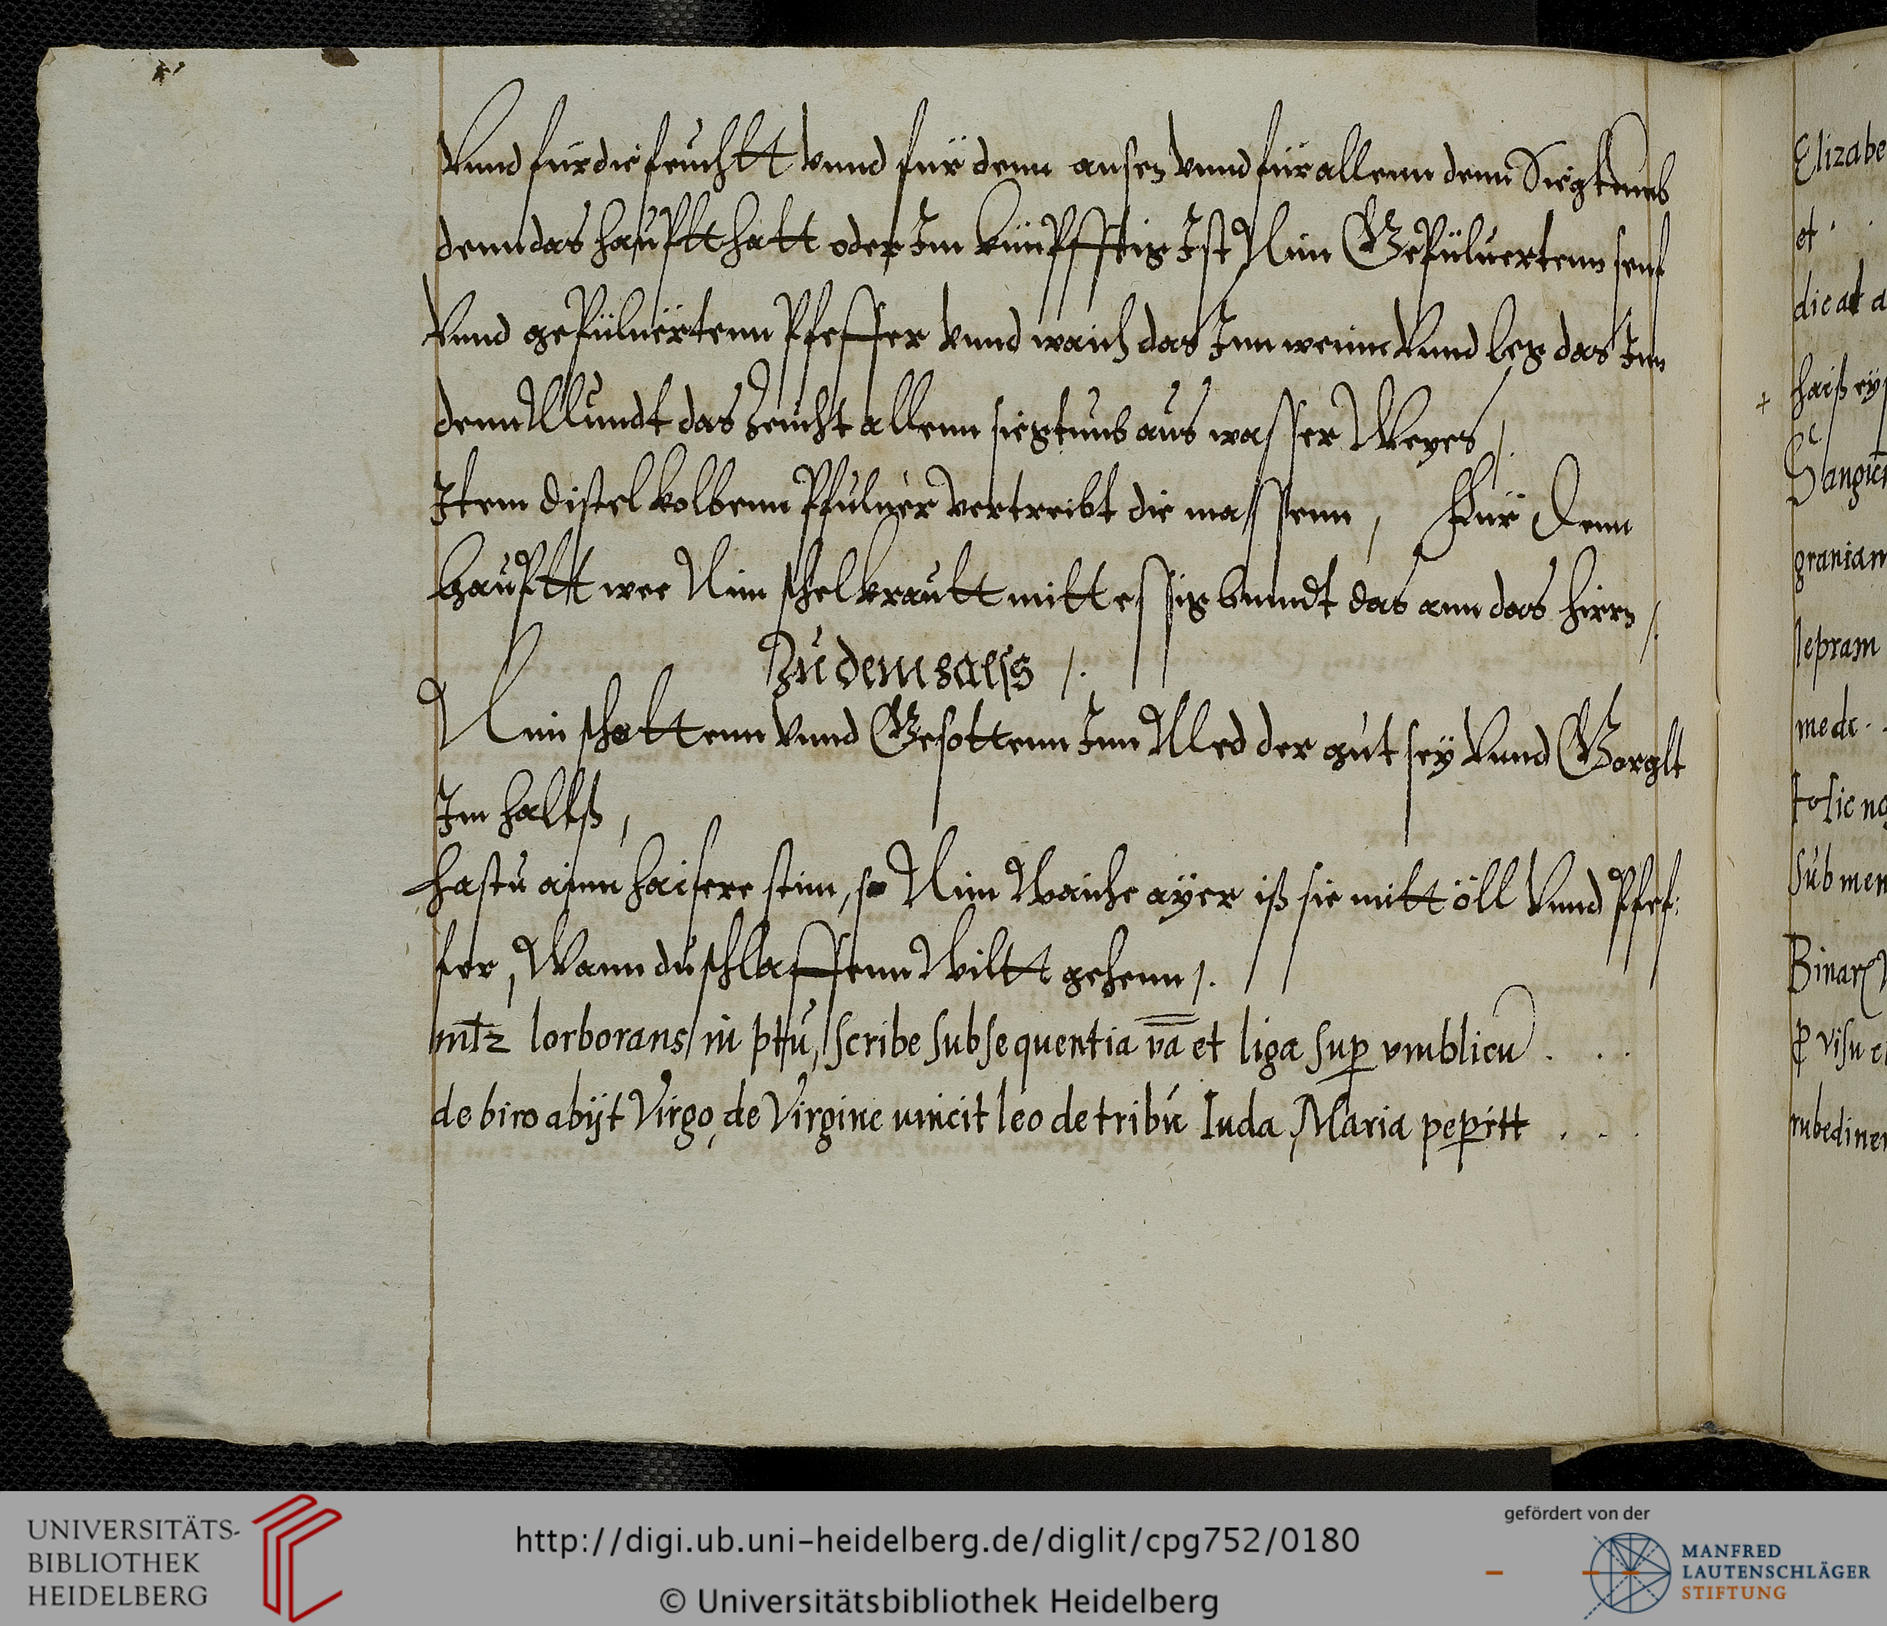 Vnnd für die feuchtt vnnd für denn ausez vnnd für allenn denn Siegtumb
denn das haupltt hatt oder Im künfftig Ist Nim Gepüluertenn senf
Vnnd gepüluertenn Pfeffer vnnd waich das Inn wein Vnnd leg das Inn
denn Mundt das zeucht allenn siegtumb aus wasser Weyes /.
Item distel kolbenn Pfuluer vertreibt die massenn, Für Denn
hauptt wee Nim schelkrautt mitt essig binndt das ann das hirn /.
Zu dem hals /.
Nim schelttenn vnnd Gesottenn Inn Med der gut sey Vnnd Gorglt
Im hallß,
hastu ainn haisere stim, so Nim Waiche ayer iß sie mitt öll Vnnd Pfef:
fer, Wann du schlaffenn Wiltt gehenn /.
mlz lorborans in ptu, scribe subsequentia va et liga sup vmblicu . . .
de biro abijt Virgo, de Virgine vincit leo de tribu Iuda, Maria peperitt . . .
Elizabe
et .
dicat a
+ haiß ey
Sangui
graniam
lepram
mede . .
tosic no
Sub men
Binar
p visu e
rubediner
UNIVERSITÄTS-
BIBLIOTHEK
HEIDELBERG
http://digi.ub.uni-heidelberg.de/diglit/cpg752/0180
© Universitätsbibliothek Heidelberg
gefördert von der
MANFRED
LAUTENSCHLÄGER
STIFTUNG